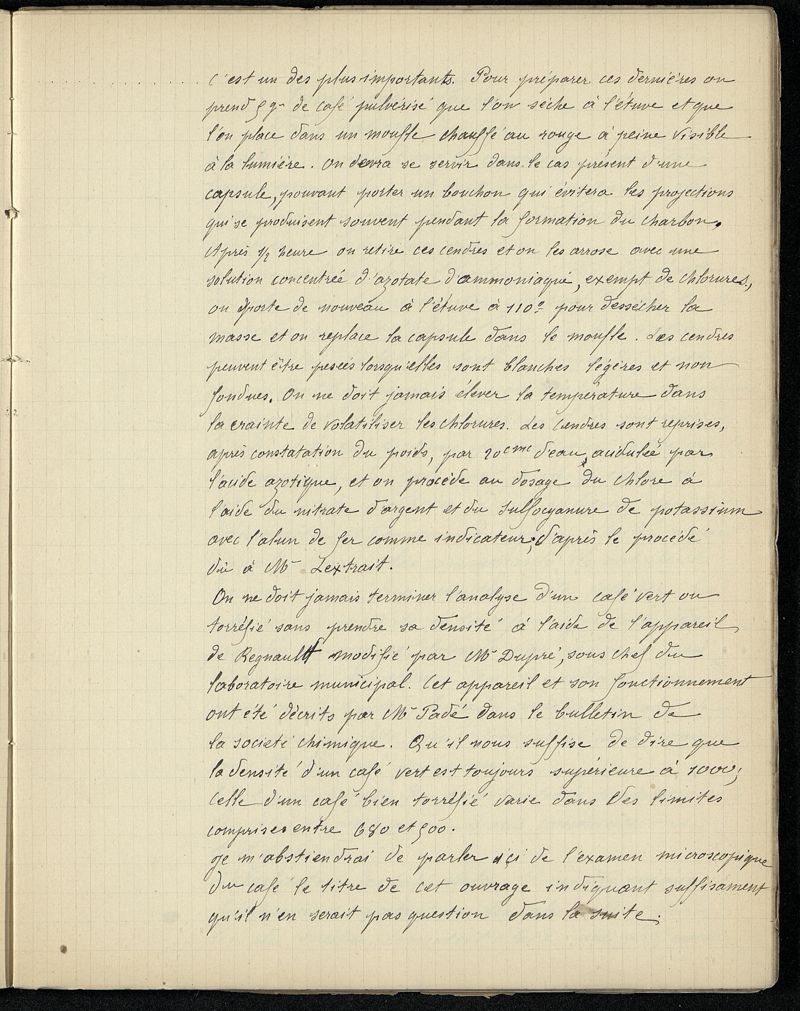 c'est un des plus importants. Pour préparer ces dernières on
prend 5 gr de café pulvérisé que l'on sèche à l'étuve et que
l'on place dans un moufle chauffé au rouge à peine visible
à la lumière. On devra se servir dans le cas présent d'une
capsule, pouvant porter un bouchon qui évitera les projections
qui se produisent souvent pendant la formation du charbon.
Après 1/2 heure on retire ces cendres et on les arrose avec une
solution concentrée d'azotate d'ammoniaque, exempt de chlorures,
on porte de nouveau à l'étuve à 110° pour dessécher la
masse et on replace la capsule dans le moufle. Les cendres
peuvent être pesées lorsqu'elles sont blanches légères et non
fondues. On ne doit jamais élever la température dans
la crainte de volatiliser les chlorures. Les cendres sont reprises,
après constatation du poids, par 20cmc d'eau acidulée par
l'acide azotique, et on procède au dosage du chlore à
l'aide du nitrate d'argent et du sulfocyanure de potassium
avec l'alun de fer comme indicateur, d'après le procédé
dû à Mr Lextrait.
On ne doit jamais terminer l'analyse d'un café vert ou
torréfié sans prendre sa densité à l'aide de l'appareil
de Regnault modifié par Mr Dupré, sous chef du
laboratoire municipal. Cet appareil et son fonctionnement
ont été décrits par Mr Padé dans le bulletin de
la société chimique. Qu'il nous suffise de dire que
la densité d'un café vert est toujours supérieure à 1000;
celle d'un café bien torréfié varie dans les limites
comprises entre 680 et 500.
Je m'abstiendrai de parler ici de l'examen microscopique
du café le titre de cet ouvrage indiquant suffisament
qu'il n'en serait pas question dans la suite.